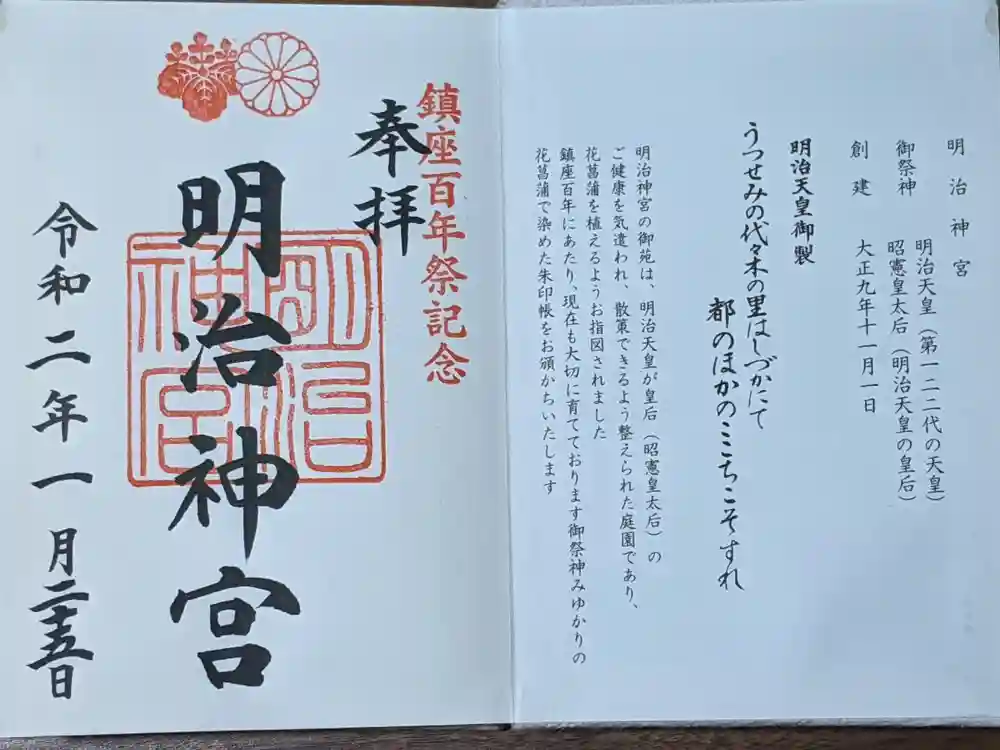 明治神宮
御祭神 明治天皇（第一二二代の天皇）
昭憲皇太后（明治天皇の皇后）
創建 大正九年十一月一日
明治天皇御製
うつせみの代々木の里はしづかにて
都のほかのこゝちこそすれ
明治神宮の御苑は、明治天皇が皇后（昭憲皇太后）の
ご健康を気遣われ、散策できるよう整えられた庭園であり、
花菖蒲を植えるようお指図されました
鎮座百年にあたり、現在も大切に育てております御祭神みゆかりの
花菖蒲で染めた朱印帳をお頒かちいたします
鎮座百年祭記念
奉拝
明治神宮
明治
神宮
令和二年一月二十五日